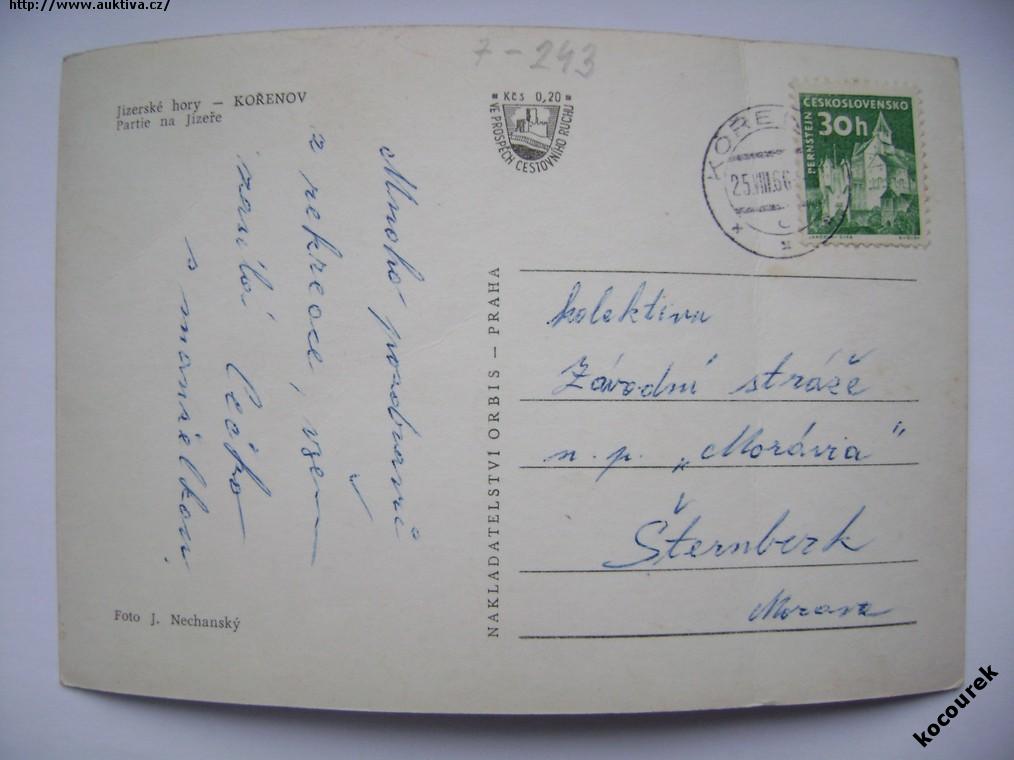 http://www.auktiva.cz/
7-243
Jizerské hory — KOŘENOV
Partie na Jizeře
Kčs 0,20
VE PROSPĚCH CESTOVNÍHO RUCHU
KOŘENOV
25.VIII.66
ČESKOSLOVENSKO
30h
PERNŠTEJN
Mnoho pozdravů
z rekreace, všem
zasílá
s manželkou.
NAKLADATELSTVÍ ORBIS — PRAHA
kolektivu
Závodní stráže
n. p. „Morávia"
Šternberk
Morava
Foto J. Nechanský
kocourek